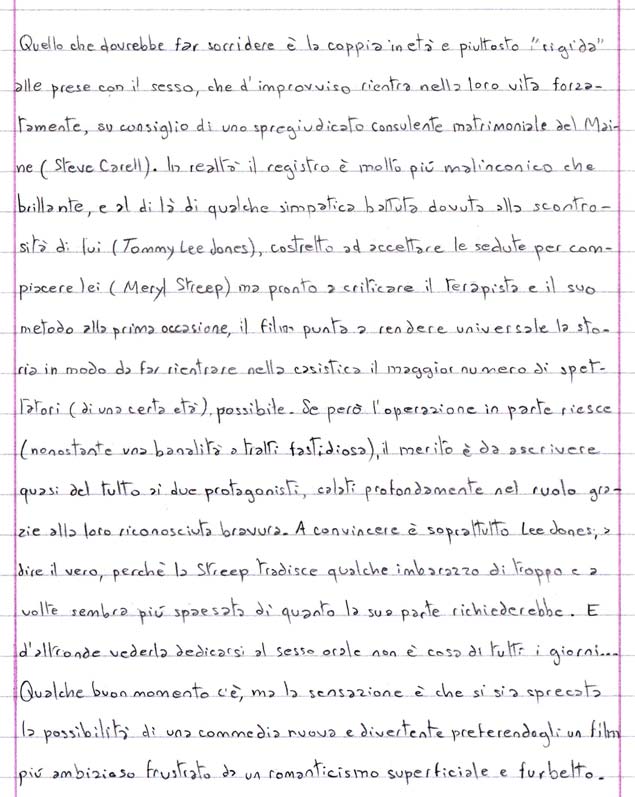 Quello che dovrebbe far sorridere è la coppia in età e piuttosto "rigida"
alle prese con il sesso, che d'improvviso rientra nella loro vita forza-
tamente, su consiglio di uno spregiudicato consulente matrimoniale del Mai-
ne (Steve Carell). In realtà il registro è molto più malinconico che
brillante, e al di là di qualche simpatica battuta dovuta alla scontro-
sità di lui (Tommy Lee Jones), costretto ad accettare le sedute per com-
piacere lei (Meryl Streep) ma pronto a criticare il terapista e il suo
metodo alla prima occasione, il film punta a rendere universale la sto-
ria in modo da far rientrare nella casistica il maggior numero di spet-
tatori (di una certa età) possibile. Se però l'operazione in parte riesce
(nonostante una banalità a tratti fastidiosa), il merito è da ascrivere
quasi del tutto ai due protagonisti, calati profondamente nel ruolo gra-
zie alla loro riconosciuta bravura. A convincere è soprattutto Lee Jones, a
dire il vero, perchè la Streep tradisce qualche imbarazzo di troppo e a
volte sembra più spaesata di quanto la sua parte richiederebbe. E
d'altronde vederla dedicarsi al sesso orale non è cosa di tutti i giorni...
Qualche buon momento c'è, ma la sensazione è che si sia sprecata
la possibilità di una commedia nuova e divertente preferendogli un film
più ambizioso frustrato da un romanticismo superficiale e furbetto.